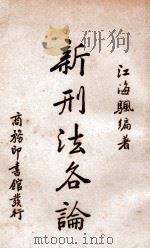 江海颿編著
新刑法各論
商務印書館發行